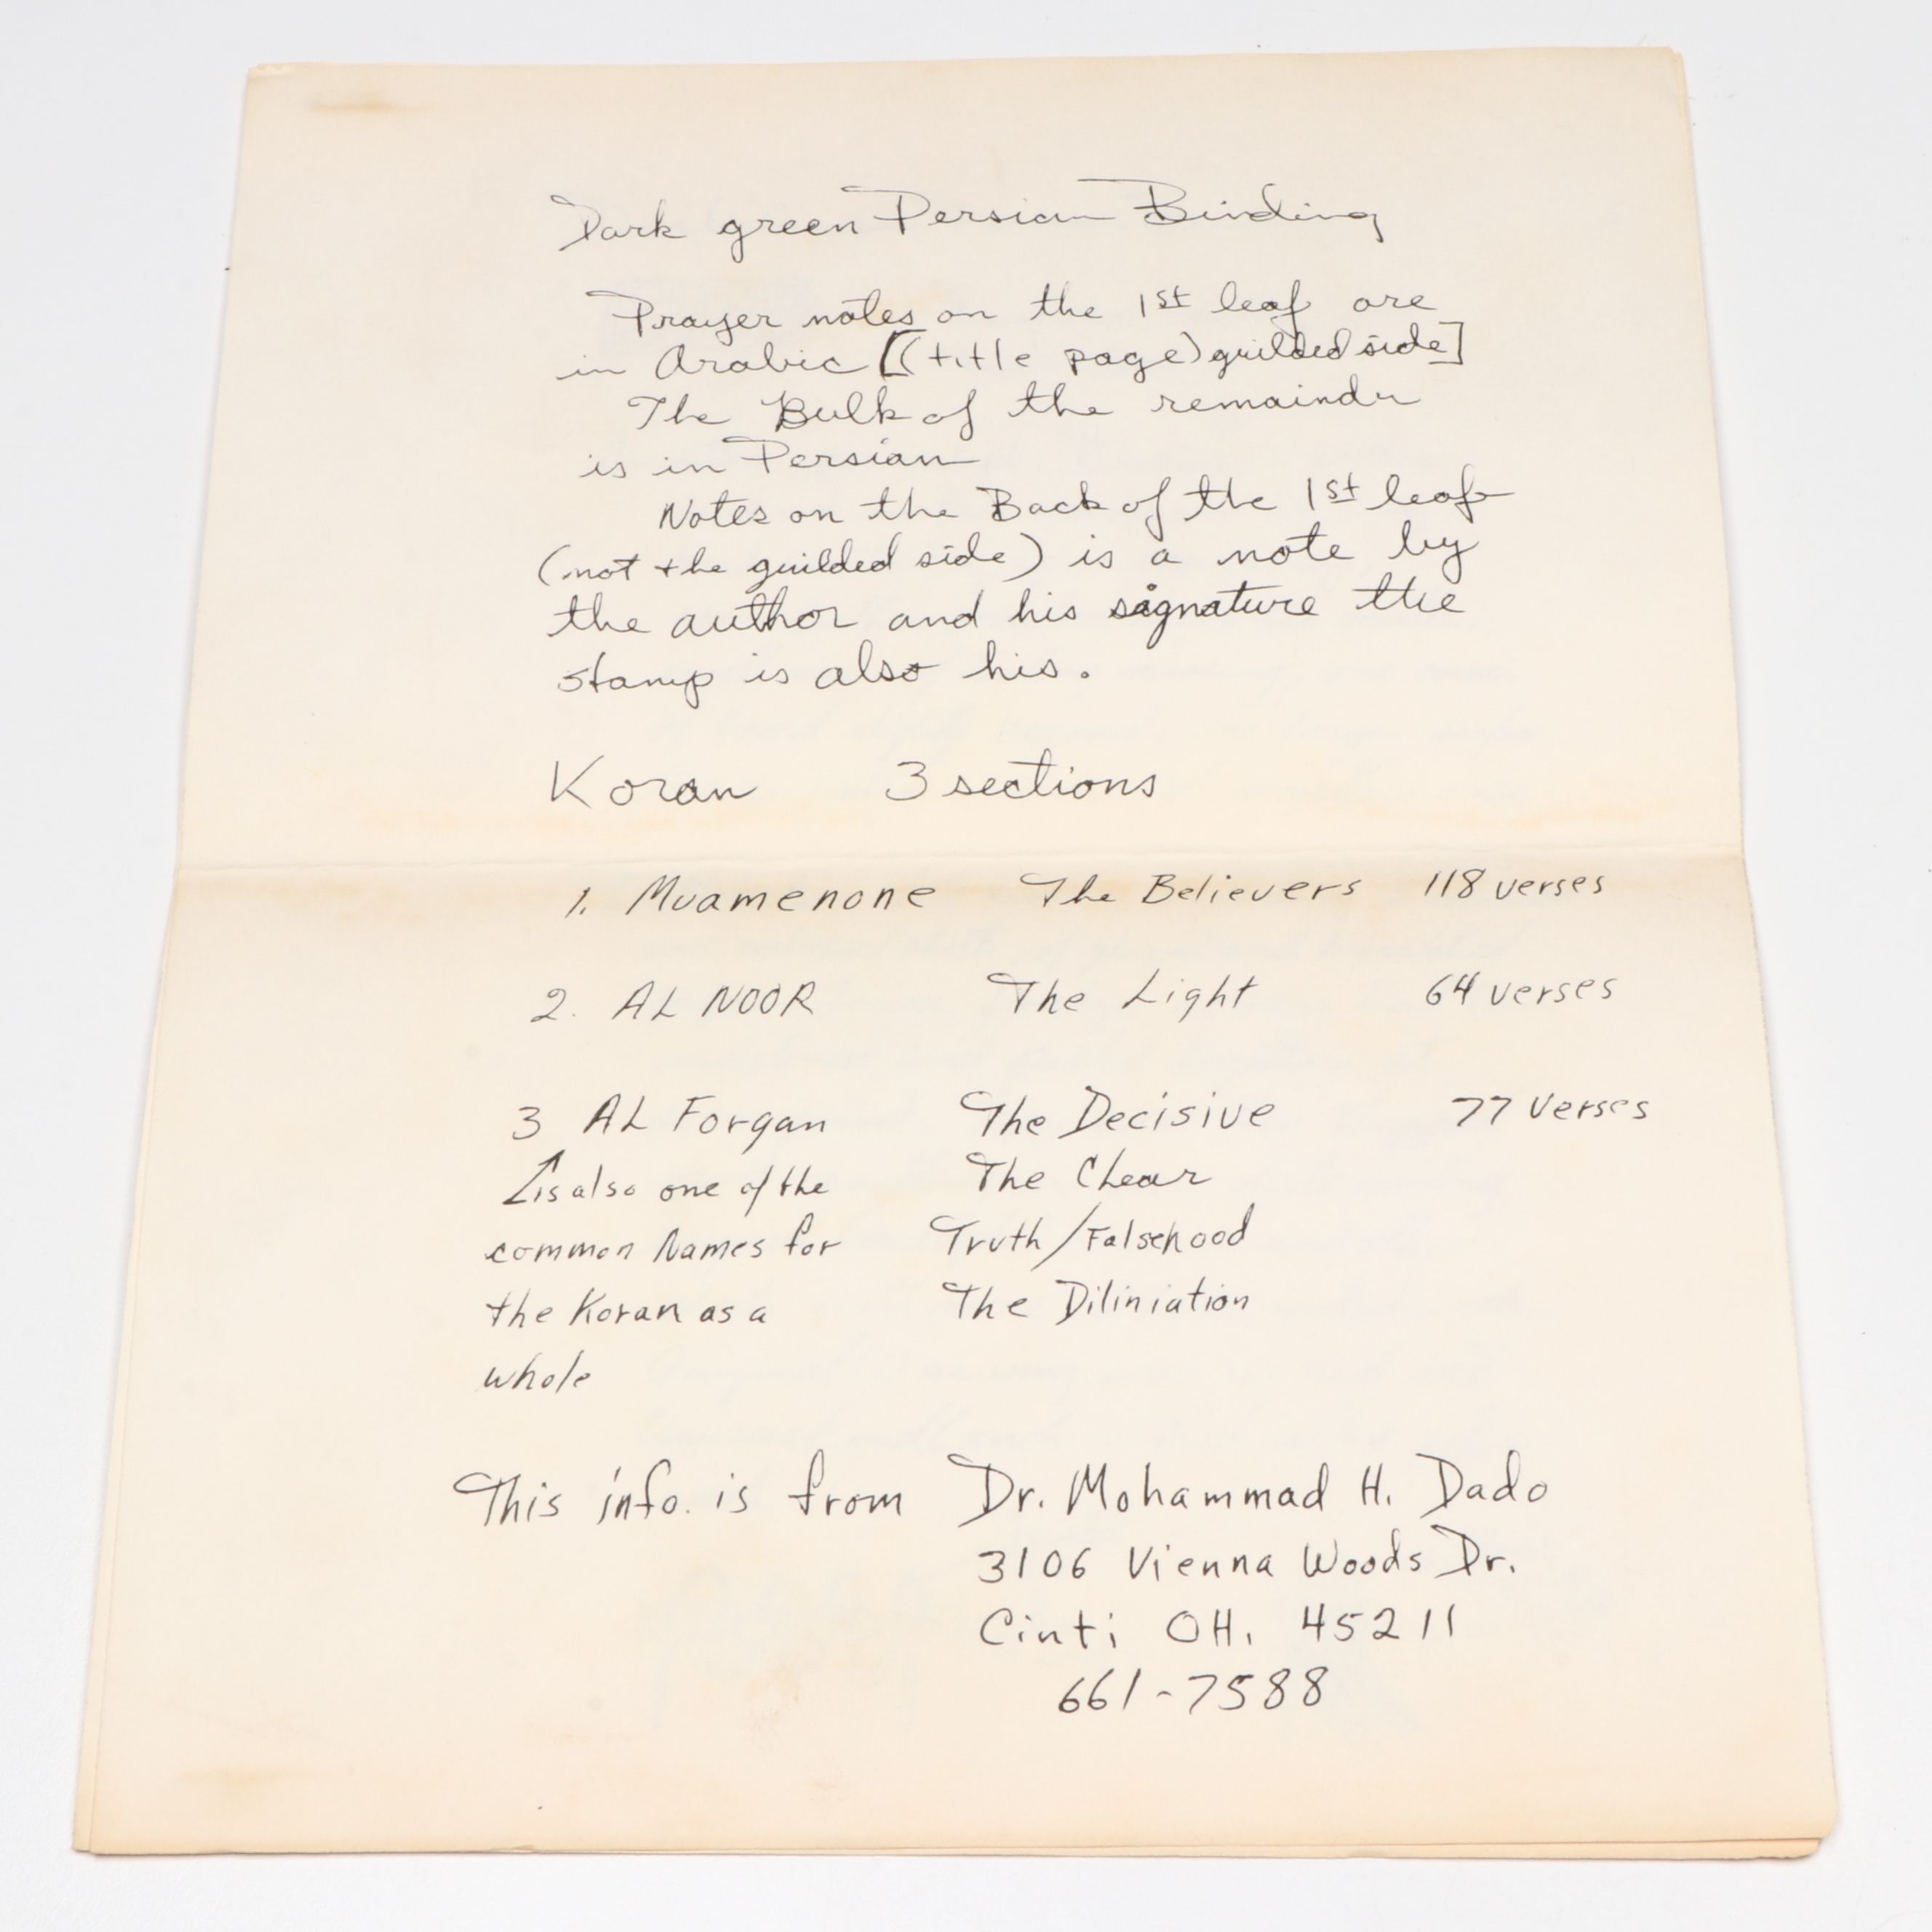 Dark green Persian Binding
Prayer notes on the 1st leaf are
in Arabic [(title page) guilded side]
The Bulk of the remainder
is in Persian
Notes on the Back of the 1st leaf
(not the guilded side) is a note by
the author and his signature the
stamp is also his.
Koran 3 sections
1. Muamenone The Believers 118 verses
2. AL NOOR The Light 64 verses
3 AL Forgan The Decisive 77 Verses
↑is also one of the The Clear
common Names for Truth/Falsehood
the Koran as a The Diliniation
whole
This info. is from Dr. Mohammad H. Dado
3106 Vienna Woods Dr.
Cinti OH. 45211
661-7588